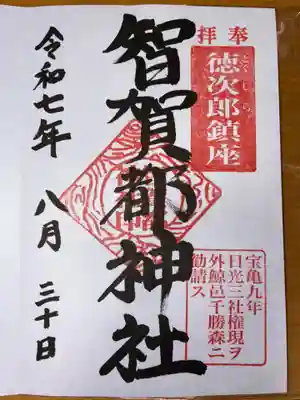 奉拝
徳次郎鎮座
とくじら
智賀都神社
令和七年 八月 三十日
宝亀九年
日光三社権現ヲ
外鯨邑千勝森ニ
勧請ス